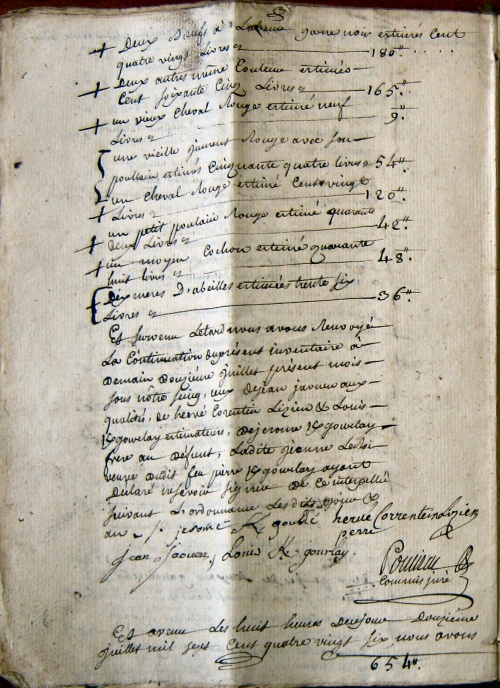 Deux Bœufs à Labeur gare noir estimés Cent
quatre vingt Livres cy 180"."
Deux autres même Couleur estimés
Cent soixante Cinq Livres cy 165"."
un vieux Cheval Rouge estimé neuf
Livres cy 9"."
une vieille jument Rouge avec son
poullain estimés Cinquante quatre livres 54"."
un Cheval Rouge estimé Cent vingt
Livres cy 120"."
un petit poulain Rouge estimé quarante
deux Livres cy 42"."
un moyen Cochon estimé quarante
huit livres cy 48"."
Dix meres D'abeilles estimées trente six
Livres cy 36"."
Et survenu Letard nous avons Renvoyé
La Continuation du présent inventaire à
Demain Douzième juillet présent mois
sous nôtre seing, ceux dejean jaouen aux
qualités, de hervé Corentin Lizien & Louis
Kgourlay estimateurs, de jerome Kgourlay
frere au Deffunt, Ladite jeanne
veuve dudit feu pierre Kgourlay ayant
Declaré ne sçavoir signer de ce interpellée
suivant L'ordonnance
jerome K goullé herve Correntin Lizien
perre
jean jaouen, Louis K. gourlay.
Commis juré
Et avenu Les huit heures Dece jour Douzième
juillet mil sept Cent quatre vingt six nous avons
654"."